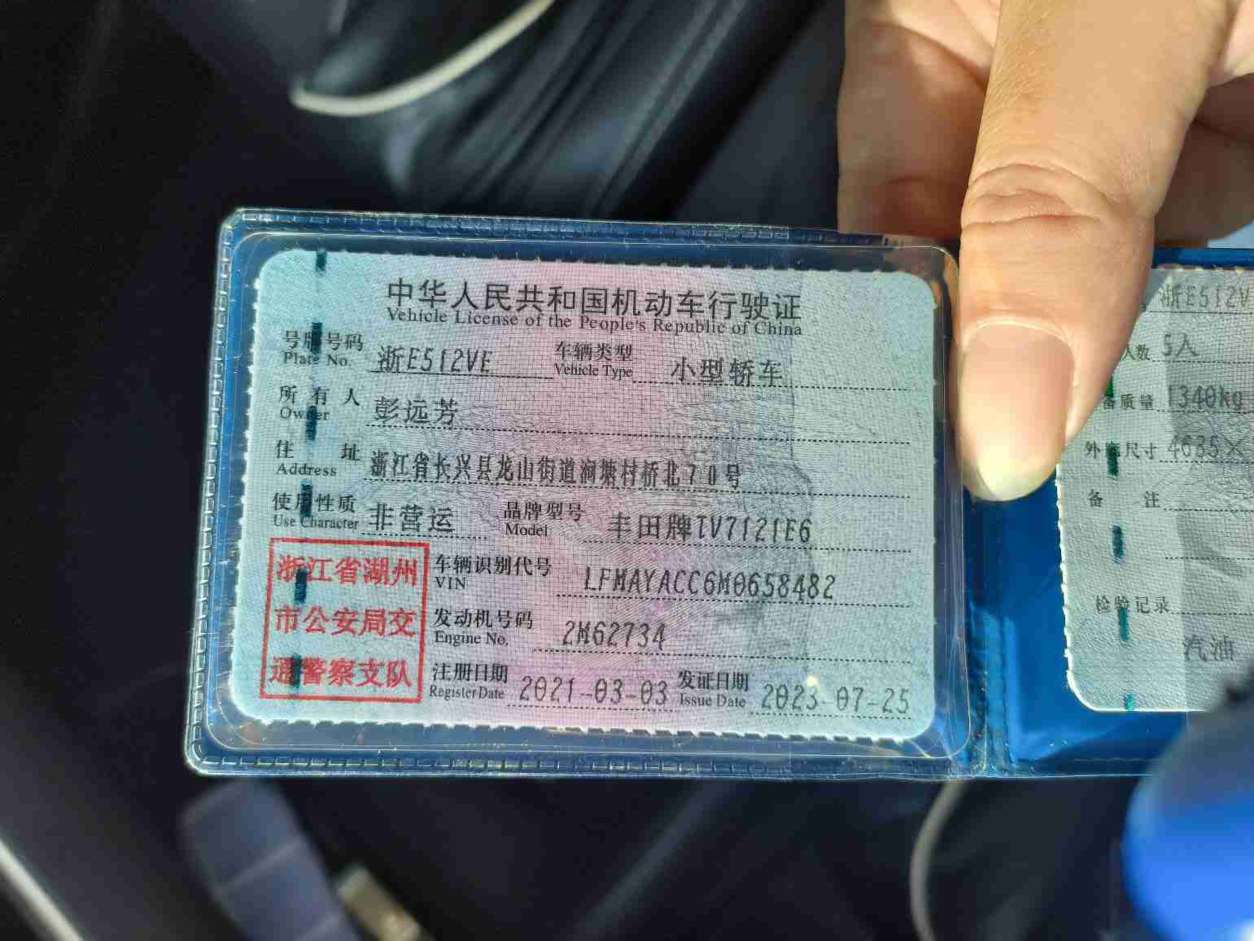 中华人民共和国机动车行驶证
Vehicle License of the People's Republic of China
号牌号码 浙E512VE 车辆类型 小型轿车
Plate No. Vehicle Type
所有人 彭远芳
Owner
住址 浙江省长兴县龙山街道涧塘村桥北70号
Address
使用性质 非营运 品牌型号 丰田牌TV7121E6
Use Character Model
浙江省湖州
市公安局交
通警察支队
车辆识别代号 LFMAYACC6M0658482
VIN
发动机号码 2M62734
Engine No.
注册日期 2021-03-03 发证日期 2023-07-25
Register Date Issue Date
浙E512V
人数 5人
备质量 1340kg
外廓尺寸 4635×
备注
检验记录
汽油